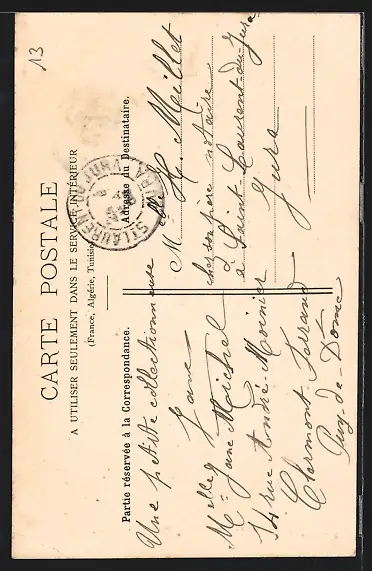 13
CARTE POSTALE
A UTILISER SEULEMENT DANS LE SERVICE INTÉRIEUR
(France, Algérie, Tunisie)
Partie réservée à la Correspondance.
Adresse du Destinataire.
Une petite collectionneuse
Jane
Melle Jane Michel
54 rue André Moinier
Clermont-Ferrand
Puy-de-Dôme
Melle H. Meillet
chez son père notaire
à Saint-Laurent-du-Jura
Jura
ST LAURENT DU JURA